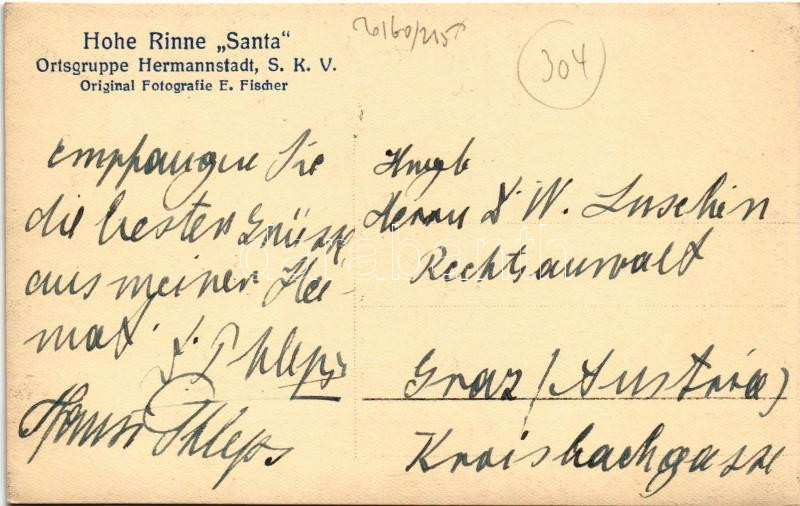 Hohe Rinne „Santa"
Ortsgruppe Hermannstadt, S. K. V.
Original Fotografie E. Fischer
304
Empfangen Sie
die besten Grüsse
aus meiner Hei-
mat.
Phleps
Hansi Phleps
Herrn Dr W. Luschin
Rechtsanwalt
Graz (Austria)
Kroisbachgasse
darabanth